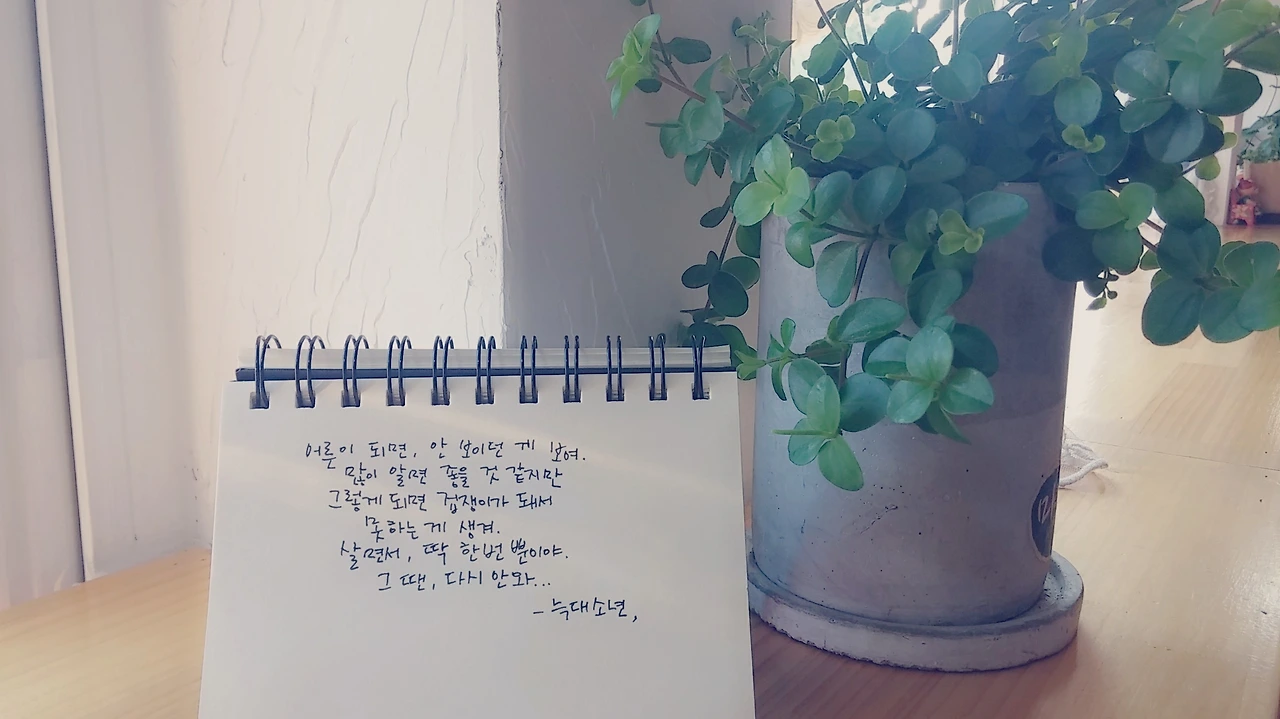 어른이 되면, 안 보이던 게 보여.
많이 알면 좋을 것 같지만
그렇게 되면 겁쟁이가 돼서
못하는 게 생겨.
살면서, 딱 한번 뿐이야.
그 땐, 다시 안와...
- 늑대소년,